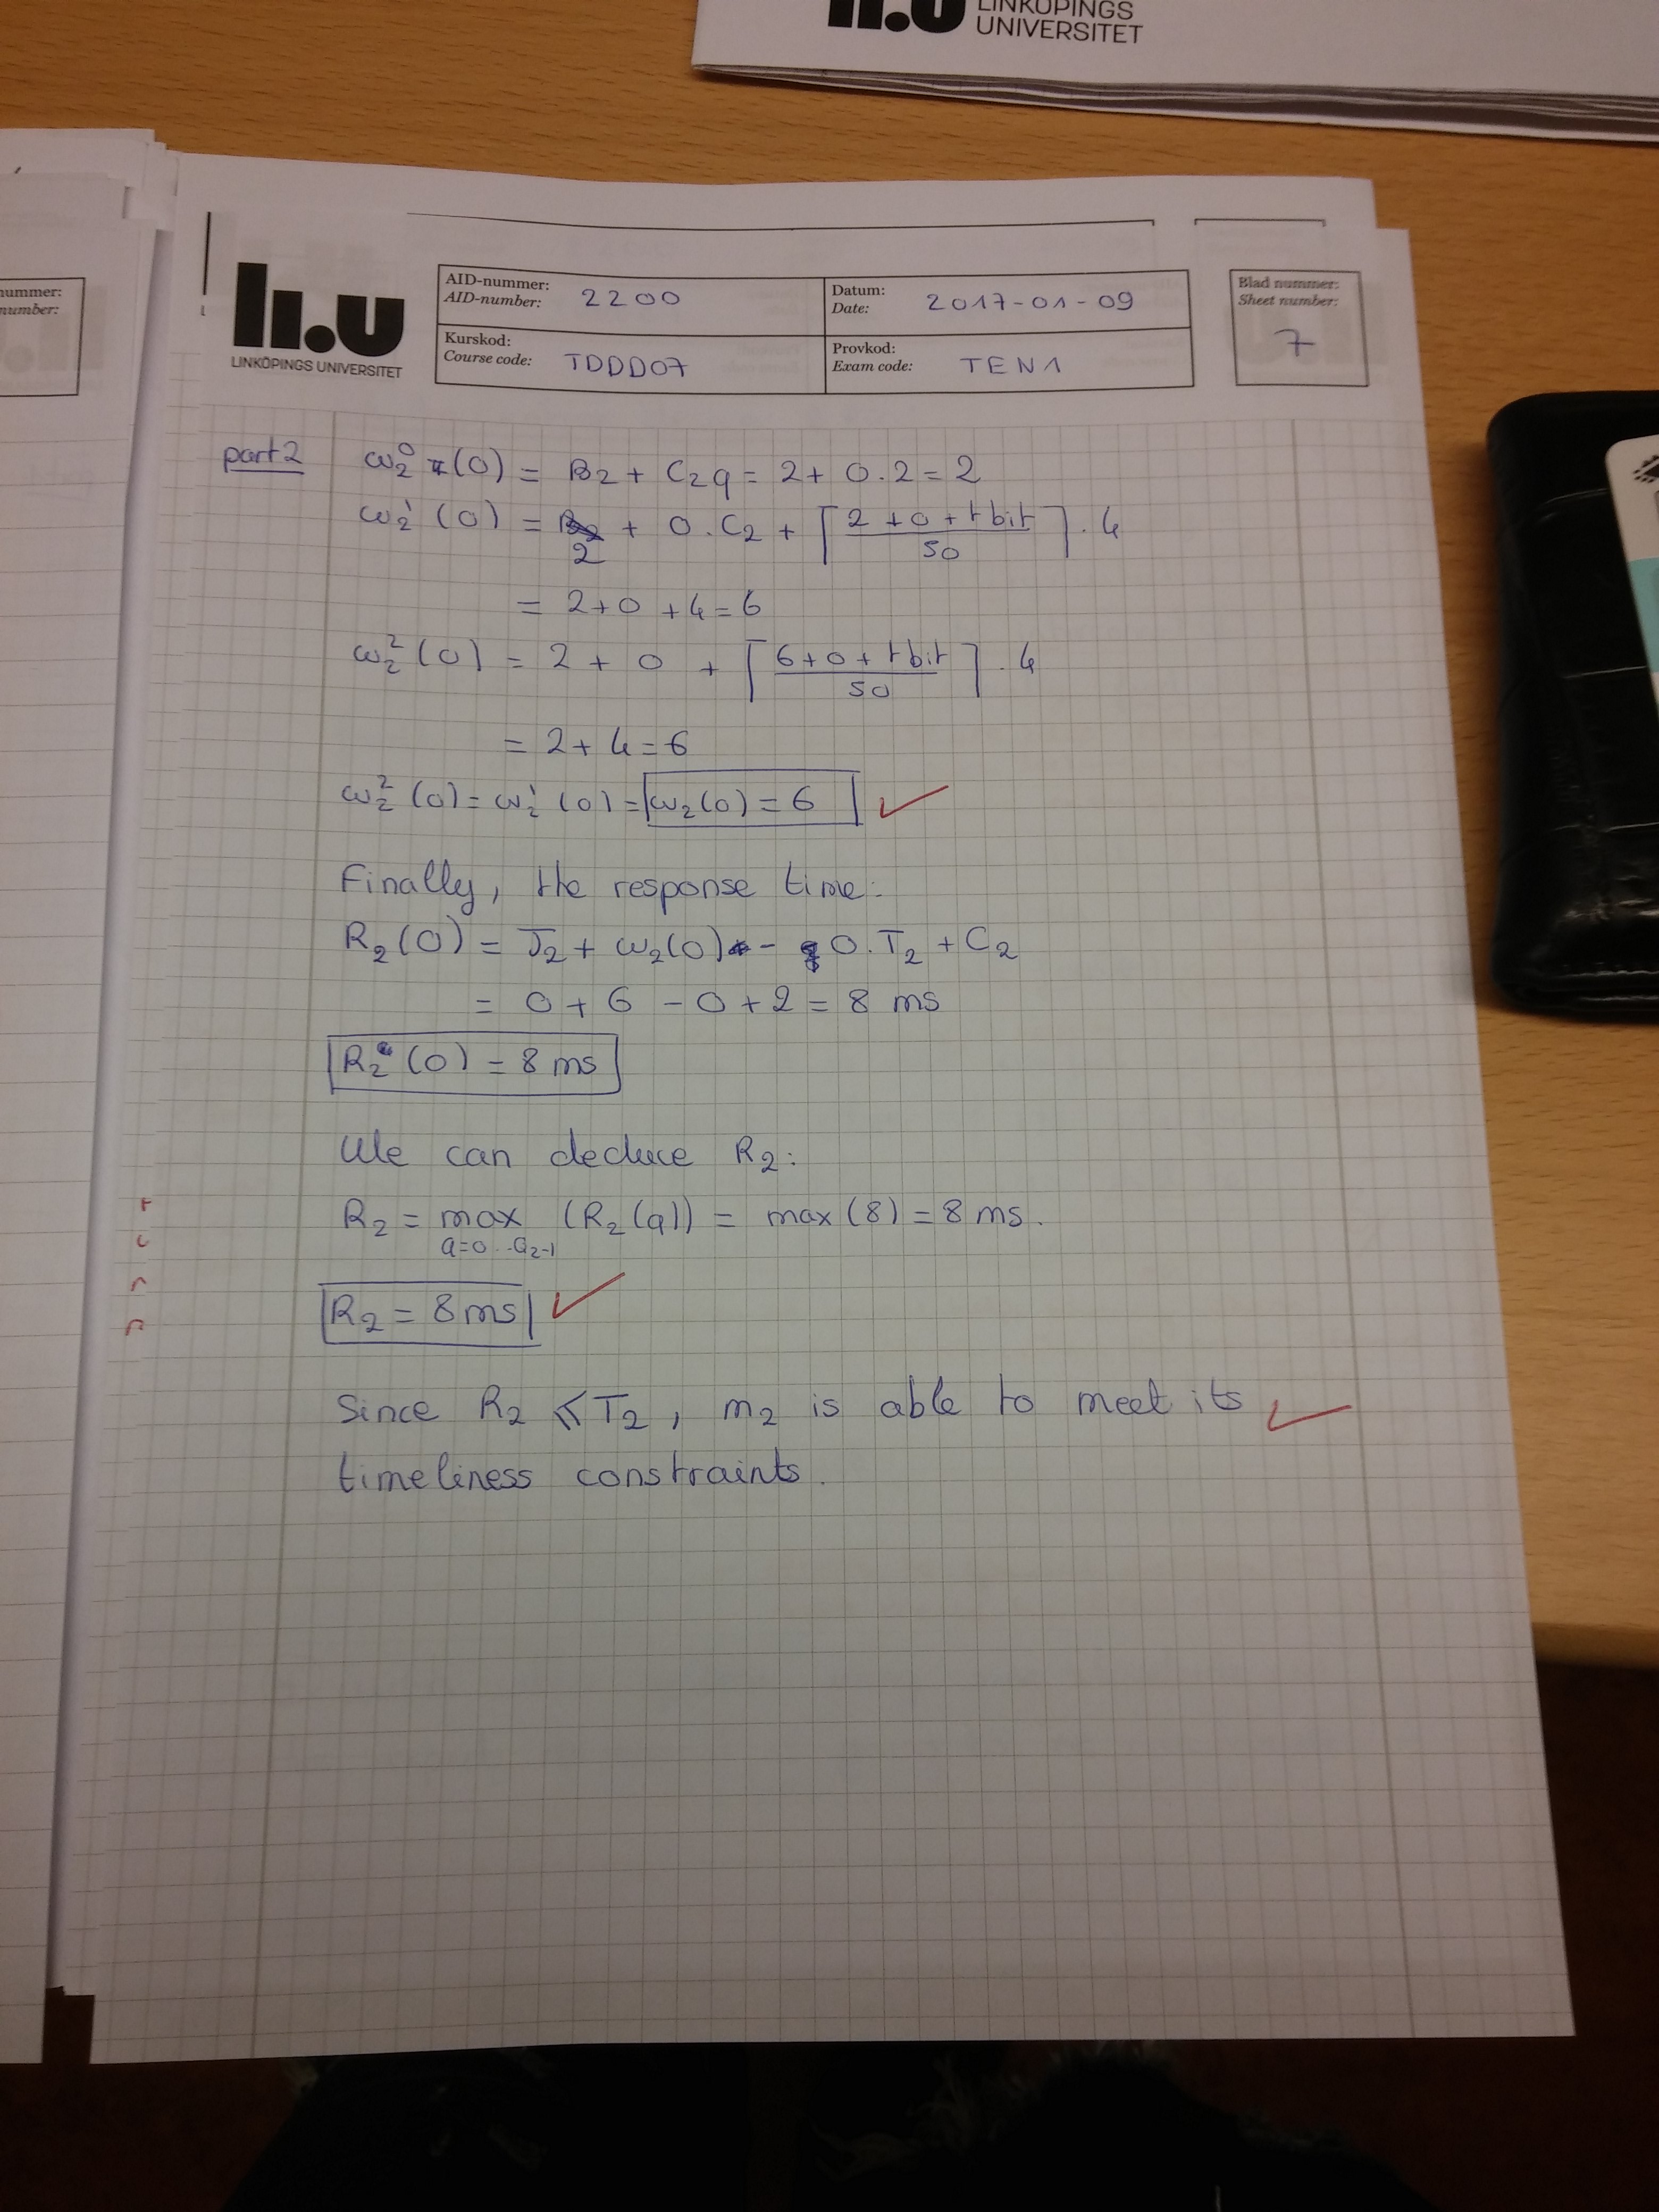 LINKÖPINGS
UNIVERSITET
nummer:
number:
li.u
LINKÖPINGS UNIVERSITET
AID-nummer:
AID-number: 2200
Datum:
Date: 2017-01-09
Blad nummer:
Sheet number:
7
Kurskod:
Course code: TDDD07
Provkod:
Exam code: TEN1
part 2
ω₂⁰ (0) = B₂ + C₂q = 2 + 0.2 = 2
ω₂¹ (0) = 2 + 0.C₂ + ⌈(2 + 0 + tbit)/50⌉ . 4
= 2+0 +4 = 6
ω₂² (0) = 2 + 0 + ⌈(6 + 0 + tbit)/50⌉ . 4
= 2 + 4 = 6
ω₂² (0) = ω₂¹ (0) = ω₂(0) = 6 ✓
Finally, the response time:
R₂(0) = J₂ + ω₂(0) - 0.T₂ + C₂
= 0 + 6 - 0 + 2 = 8 ms
R₂ (0) = 8 ms
We can deduce R₂:
R₂ = max (R₂(q)) = max (8) = 8 ms.
q=0..Q₂-1
R₂ = 8 ms ✓
Since R₂ ⩽ T₂, m₂ is able to meet its ✓
timeliness constraints.